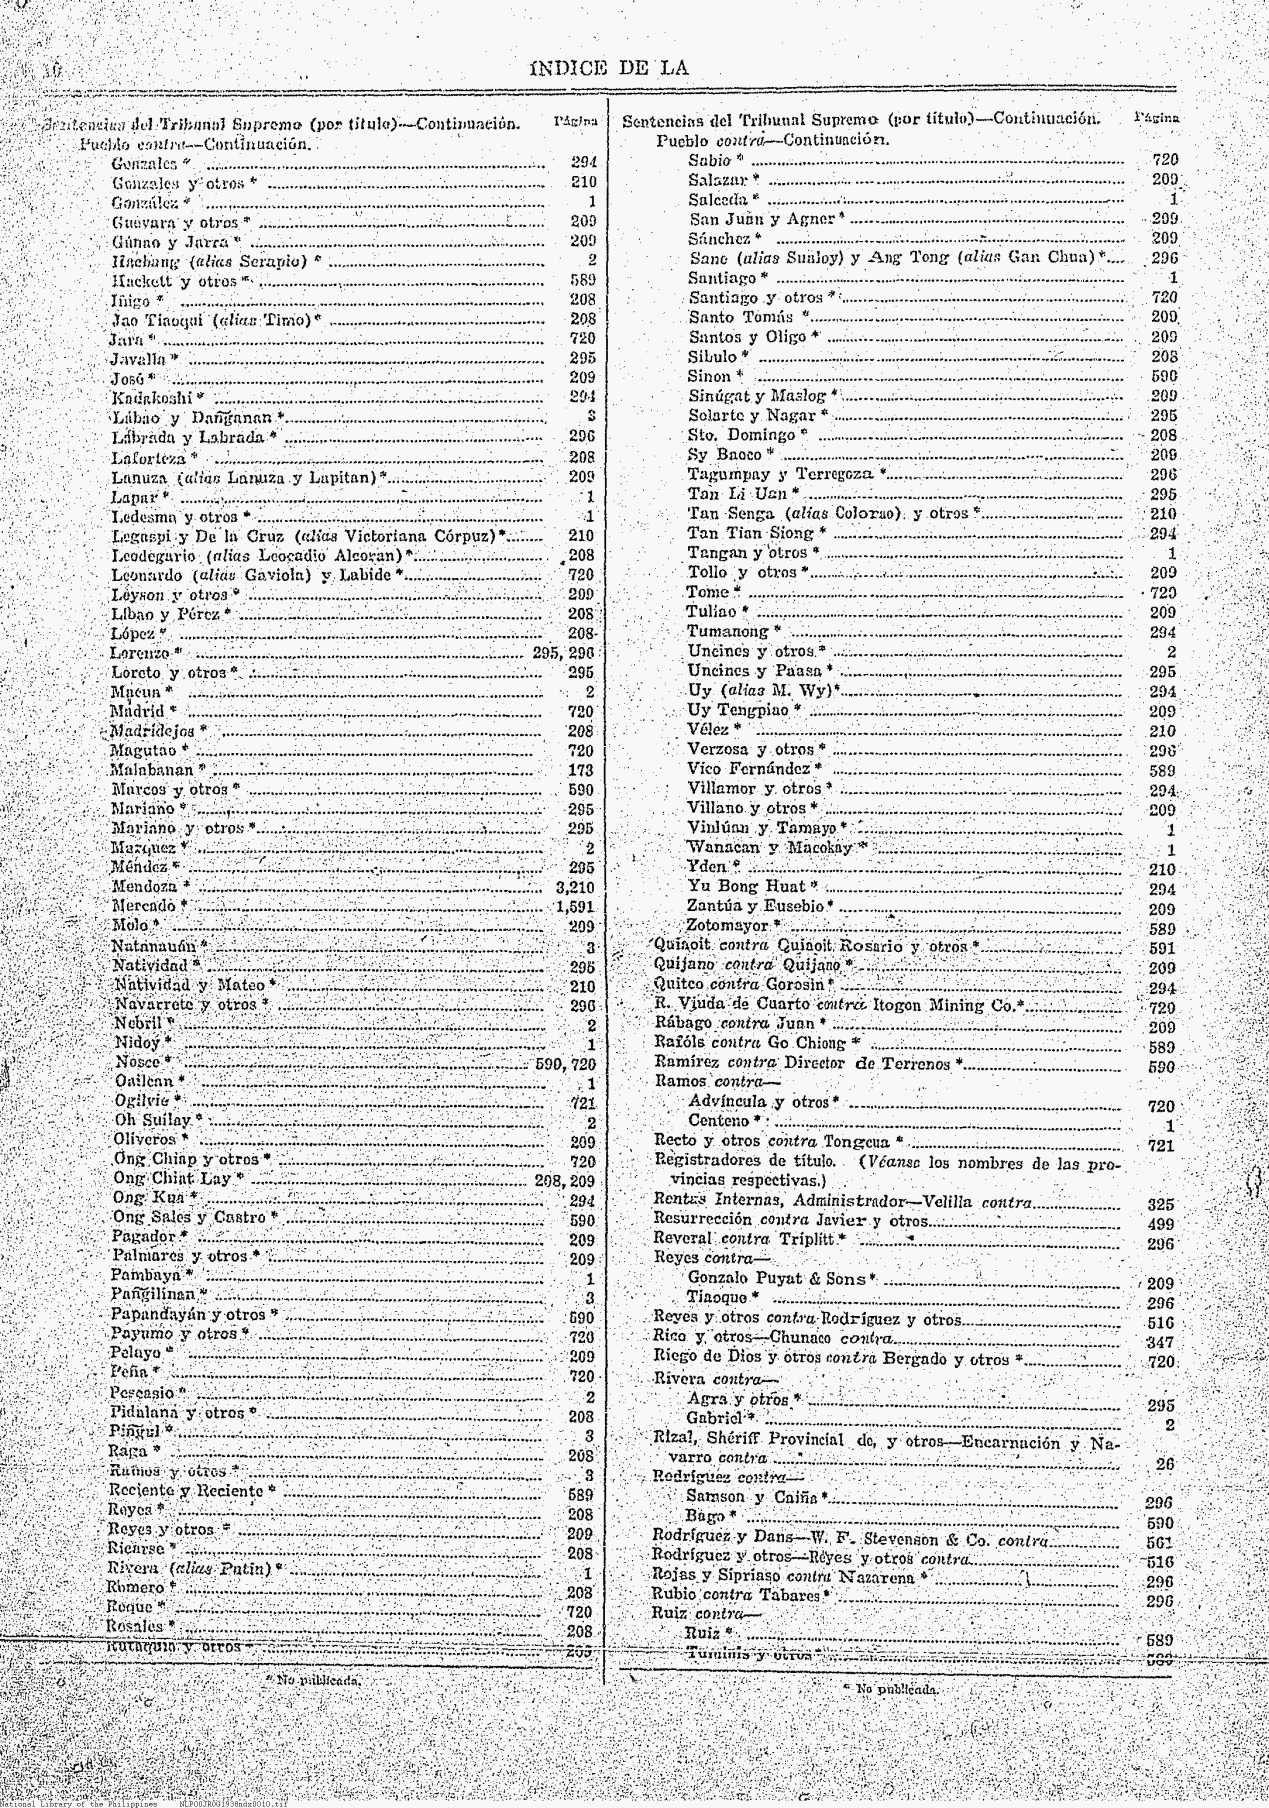 ÍNDICE DE LA
Sentencias del Tribunal Supremo (por título)—Continuación. Página
Pueblo contra—Continuación.
Gonzales * 294
Gonzales y otros * 210
González * 1
Guevara y otros * 209
Gúnao y Jarra * 209
Hachung (alias Serapio) * 2
Hackett y otros * 589
Iñigo * 208
Jao Tiaoqui (alias Timo) * 208
Jara * 720
Javalla * 295
José * 209
Kadakoshi * 294
Lábao y Dañganan * 3
Labrada y Labrada * 296
Laforteza * 208
Lanuza (alias Lanuza y Lapitan) * 209
Lapar * 1
Ledesma y otros * 1
Legaspi y De la Cruz (alias Victoriana Córpuz) * 210
Leodegario (alias Leocadio Alcoran) * 208
Leonardo (alias Gaviola) y Labide * 720
Leyson y otros * 209
Libao y Pérez * 208
López * 208
Lorenzo * 295, 296
Loreto y otros * 295
Macua * 2
Madrid * 720
Madridejos * 208
Magutao * 720
Malabanan * 173
Marcos y otros * 590
Mariano * 295
Mariano y otros * 295
Marquez * 2
Méndez * 295
Mendoza * 3,210
Mercado * 1,591
Molo * 209
Natanauán * 3
Natividad * 295
Natividad y Mateo * 210
Navarrete y otros * 296
Nebril * 2
Nidoy * 1
Nosce * 590, 720
Oailcan * 1
Ogilvie * 721
Oh Suilay * 2
Oliveros * 209
Ong Chiap y otros * 720
Ong Chiat Lay * 208, 209
Ong Kua * 294
Ong Sales y Castro * 590
Pagador * 209
Palmares y otros * 209
Pambaya * 1
Pañgilinan * 3
Papandayán y otros * 590
Payumo y otros * 720
Pelayo * 209
Peña * 720
Pescasio * 2
Pidalana y otros * 208
Piñgul * 3
Raga * 208
Ramos y otros * 3
Reciente y Reciente * 589
Reyes * 208
Reyes y otros * 209
Ricarse * 208
Rivera (alias Putin) * 1
Romero * 208
Roque * 720
Rosales * 208
* No publicada.
Sentencias del Tribunal Supremo (por título)—Continuación. Página
Pueblo contra—Continuación.
Sabio * 720
Salazar * 209
Salceda * 1
San Juan y Agner * 209
Sánchez * 209
Sane (alias Sualoy) y Ang Tong (alias Gan Chua) * 296
Santiago * 1
Santiago y otros * 720
Santo Tomás * 209
Santos y Oligo * 209
Sibulo * 208
Sinon * 590
Sinúgat y Maslog * 209
Solarte y Nagar * 295
Sto. Domingo * 208
Sy Baoco * 209
Tagumpay y Terregoza * 296
Tan Li Uan * 295
Tan Senga (alias Colorao) y otros * 210
Tan Tian Siong * 294
Tangan y otros * 1
Tollo y otros * 209
Tome * 720
Tuliao * 209
Tumanong * 294
Uncines y otros * 2
Uncines y Paasa * 295
Uy (alias M. Wy) * 294
Uy Tengpiao * 209
Vélez * 210
Verzosa y otros * 296
Vico Fernández * 589
Villamor y otros * 294
Villano y otros * 209
Vinlúan y Tamayo * 1
Wanacan y Macokay * 1
Yden * 210
Yu Bong Huat * 294
Zantúa y Eusebio * 209
Zotomayor * 589
Quiaoit contra Quiaoit Rosario y otros * 591
Quijano contra Quijano * 209
Quitco contra Gorosin * 294
R. Viuda de Cuarto contra Itogon Mining Co.* 720
Rábago contra Juan * 209
Rafóls contra Go Chiong * 589
Ramírez contra Director de Terrenos * 590
Ramos contra—
Advíncula y otros * 720
Centeno * 1
Recto y otros contra Tongcua * 721
Registradores de título. (Véanse los nombres de las pro-
vincias respectivas.)
Rentas Internas, Administrador—Velilla contra 325
Resurrección contra Javier y otros 499
Reveral contra Triplitt * 296
Reyes contra—
Gonzalo Puyat & Sons * 209
Tiaoque * 296
Reyes y otros contra Rodríguez y otros 516
Rico y otros—Chunaco contra 347
Riego de Dios y otros contra Bergado y otros * 720
Rivera contra—
Agra y otros * 295
Gabriel * 2
Rizal, Shériff Provincial de, y otros—Encarnación y Na-
varro contra 26
Rodríguez contra—
Samson y Caiña * 296
Bago * 590
Rodríguez y Dans—W. F. Stevenson & Co. contra 561
Rodríguez y otros—Reyes y otros contra 516
Rojas y Sipriaso contra Nazarena * 296
Rubio contra Tabares * 296
Ruiz contra—
Ruiz * 589
* No publicada.
National Library of the Philippines